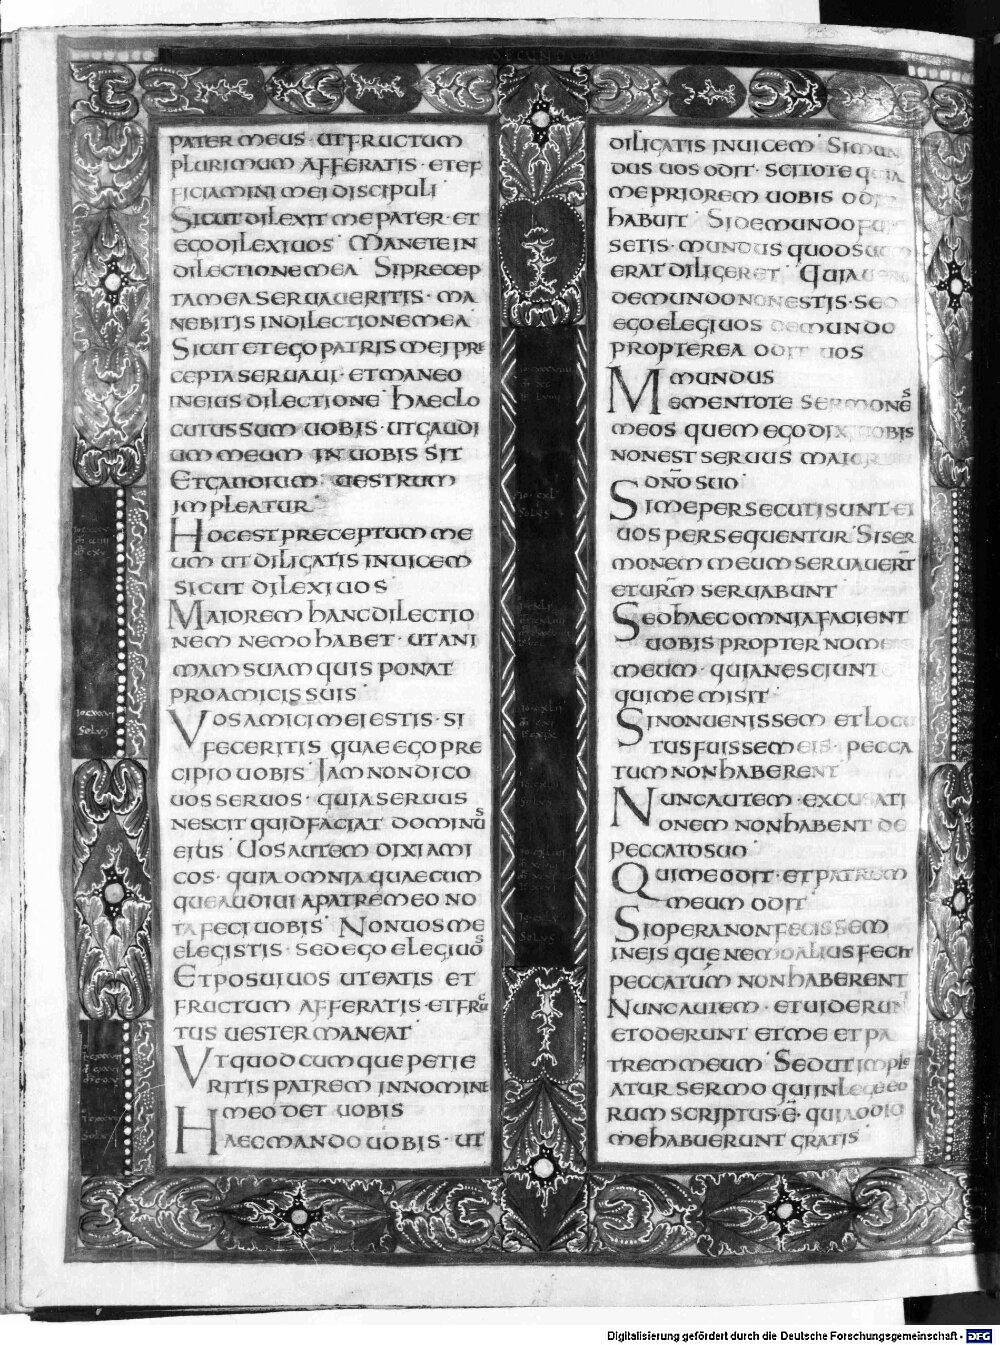 SECUNDUM
PATER MEUS · UT FRUCTUM
PLURIMUM AFFERATIS · ET EF
FICIAMINI MEI DISCIPULI
SICUT DILEXIT ME PATER · ET
EGO DILEXI UOS MANETE IN
DILECTIONE MEA SI PRECEP
TA MEA SERUAUERITIS · MA
NEBITIS IN DILECTIONE MEA
SICUT ET EGO PATRIS MEI PRE
CEPTA SERUAUI · ET MANEO
IN EIUS DILECTIONE HAEC LO
CUTUS SUM UOBIS · UT GAUDI
UM MEUM IN UOBIS SIT
ET GAUDIUM UESTRUM
IMPLEATUR
HOC EST PRECEPTUM ME
UM UT DILIGATIS INUICEM
SICUT DILEXI UOS
MAIOREM HANC DILECTIO
NEM NEMO HABET · UT ANI
MAM SUAM QUIS PONAT
PRO AMICIS SUIS
VOS AMICI MEI ESTIS · SI
FECERITIS QUAE EGO PRE
CIPIO UOBIS IAM NON DICO
UOS SERUOS · QUIA SERUUS
NESCIT QUID FACIAT DOMINUS
EIUS UOS AUTEM DIXI AMI
COS · QUIA OMNIA QUAECUM
QUE AUDIUI A PATRE MEO NO
TA FECI UOBIS NON UOS ME
ELEGISTIS · SED EGO ELEGI UOS
ET POSUI UOS UT EATIS ET
FRUCTUM AFFERATIS · ET FRUC
TUS UESTER MANEAT
VT QUODCUMQUE PETIE
RITIS PATREM IN NOMINE
MEO DET UOBIS
HAEC MANDO UOBIS · UT
DILIGATIS INUICEM SI MUN
DUS UOS ODIT · SCITOTE QUIA
ME PRIOREM UOBIS ODIO
HABUIT SI DE MUNDO FUIS
SETIS · MUNDUS QUOD SUUM
ERAT DILIGERET QUIA UERO
DE MUNDO NON ESTIS · SED
EGO ELEGI UOS DE MUNDO
PROPTEREA ODIT UOS
MUNDUS
MEMENTOTE SERMONES
MEOS QUEM EGO DIXI UOBIS
NON EST SERUUS MAIOR
DNO SUO
SI ME PERSECUTI SUNT · ET
UOS PERSEQUENTUR SI SER
MONEM MEUM SERUAUERT
ET URM SERUABUNT
SED HAEC OMNIA FACIENT
UOBIS PROPTER NOMEN
MEUM · QUIA NESCIUNT
QUI ME MISIT ·
SI NON UENISSEM ET LOCU
TUS FUISSEM EIS · PECCA
TUM NON HABERENT
NUNC AUTEM · EXCUSATI
ONEM NON HABENT DE
PECCATO SUO
QUI ME ODIT · ET PATREM
MEUM ODIT
SI OPERA NON FECISSEM
IN EIS QUE NEMO ALIUS FECIT
PECCATUM NON HABERENT
NUNC AUTEM · ET UIDERUNT
ET ODERUNT ET ME ET PA
TREM MEUM SED UT IMPLE
ATUR SERMO QUI IN LEGE EO
RUM SCRIPTUS · E · QUIA ODIO
ME HABUERUNT GRATIS
Digitalisierung gefördert durch die Deutsche Forschungsgemeinschaft - DFG